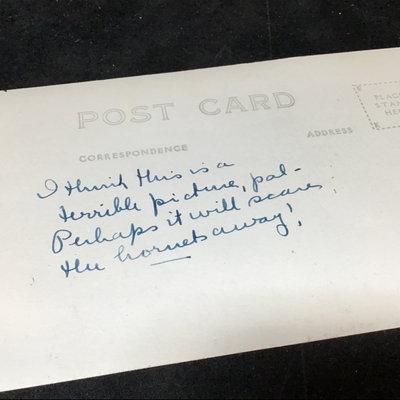 POST CARD
PLACE
STAMP
HERE
CORRESPONDENCE
ADDRESS
I think this is a
terrible picture, pal-
Perhaps it will scare
the hornets away!